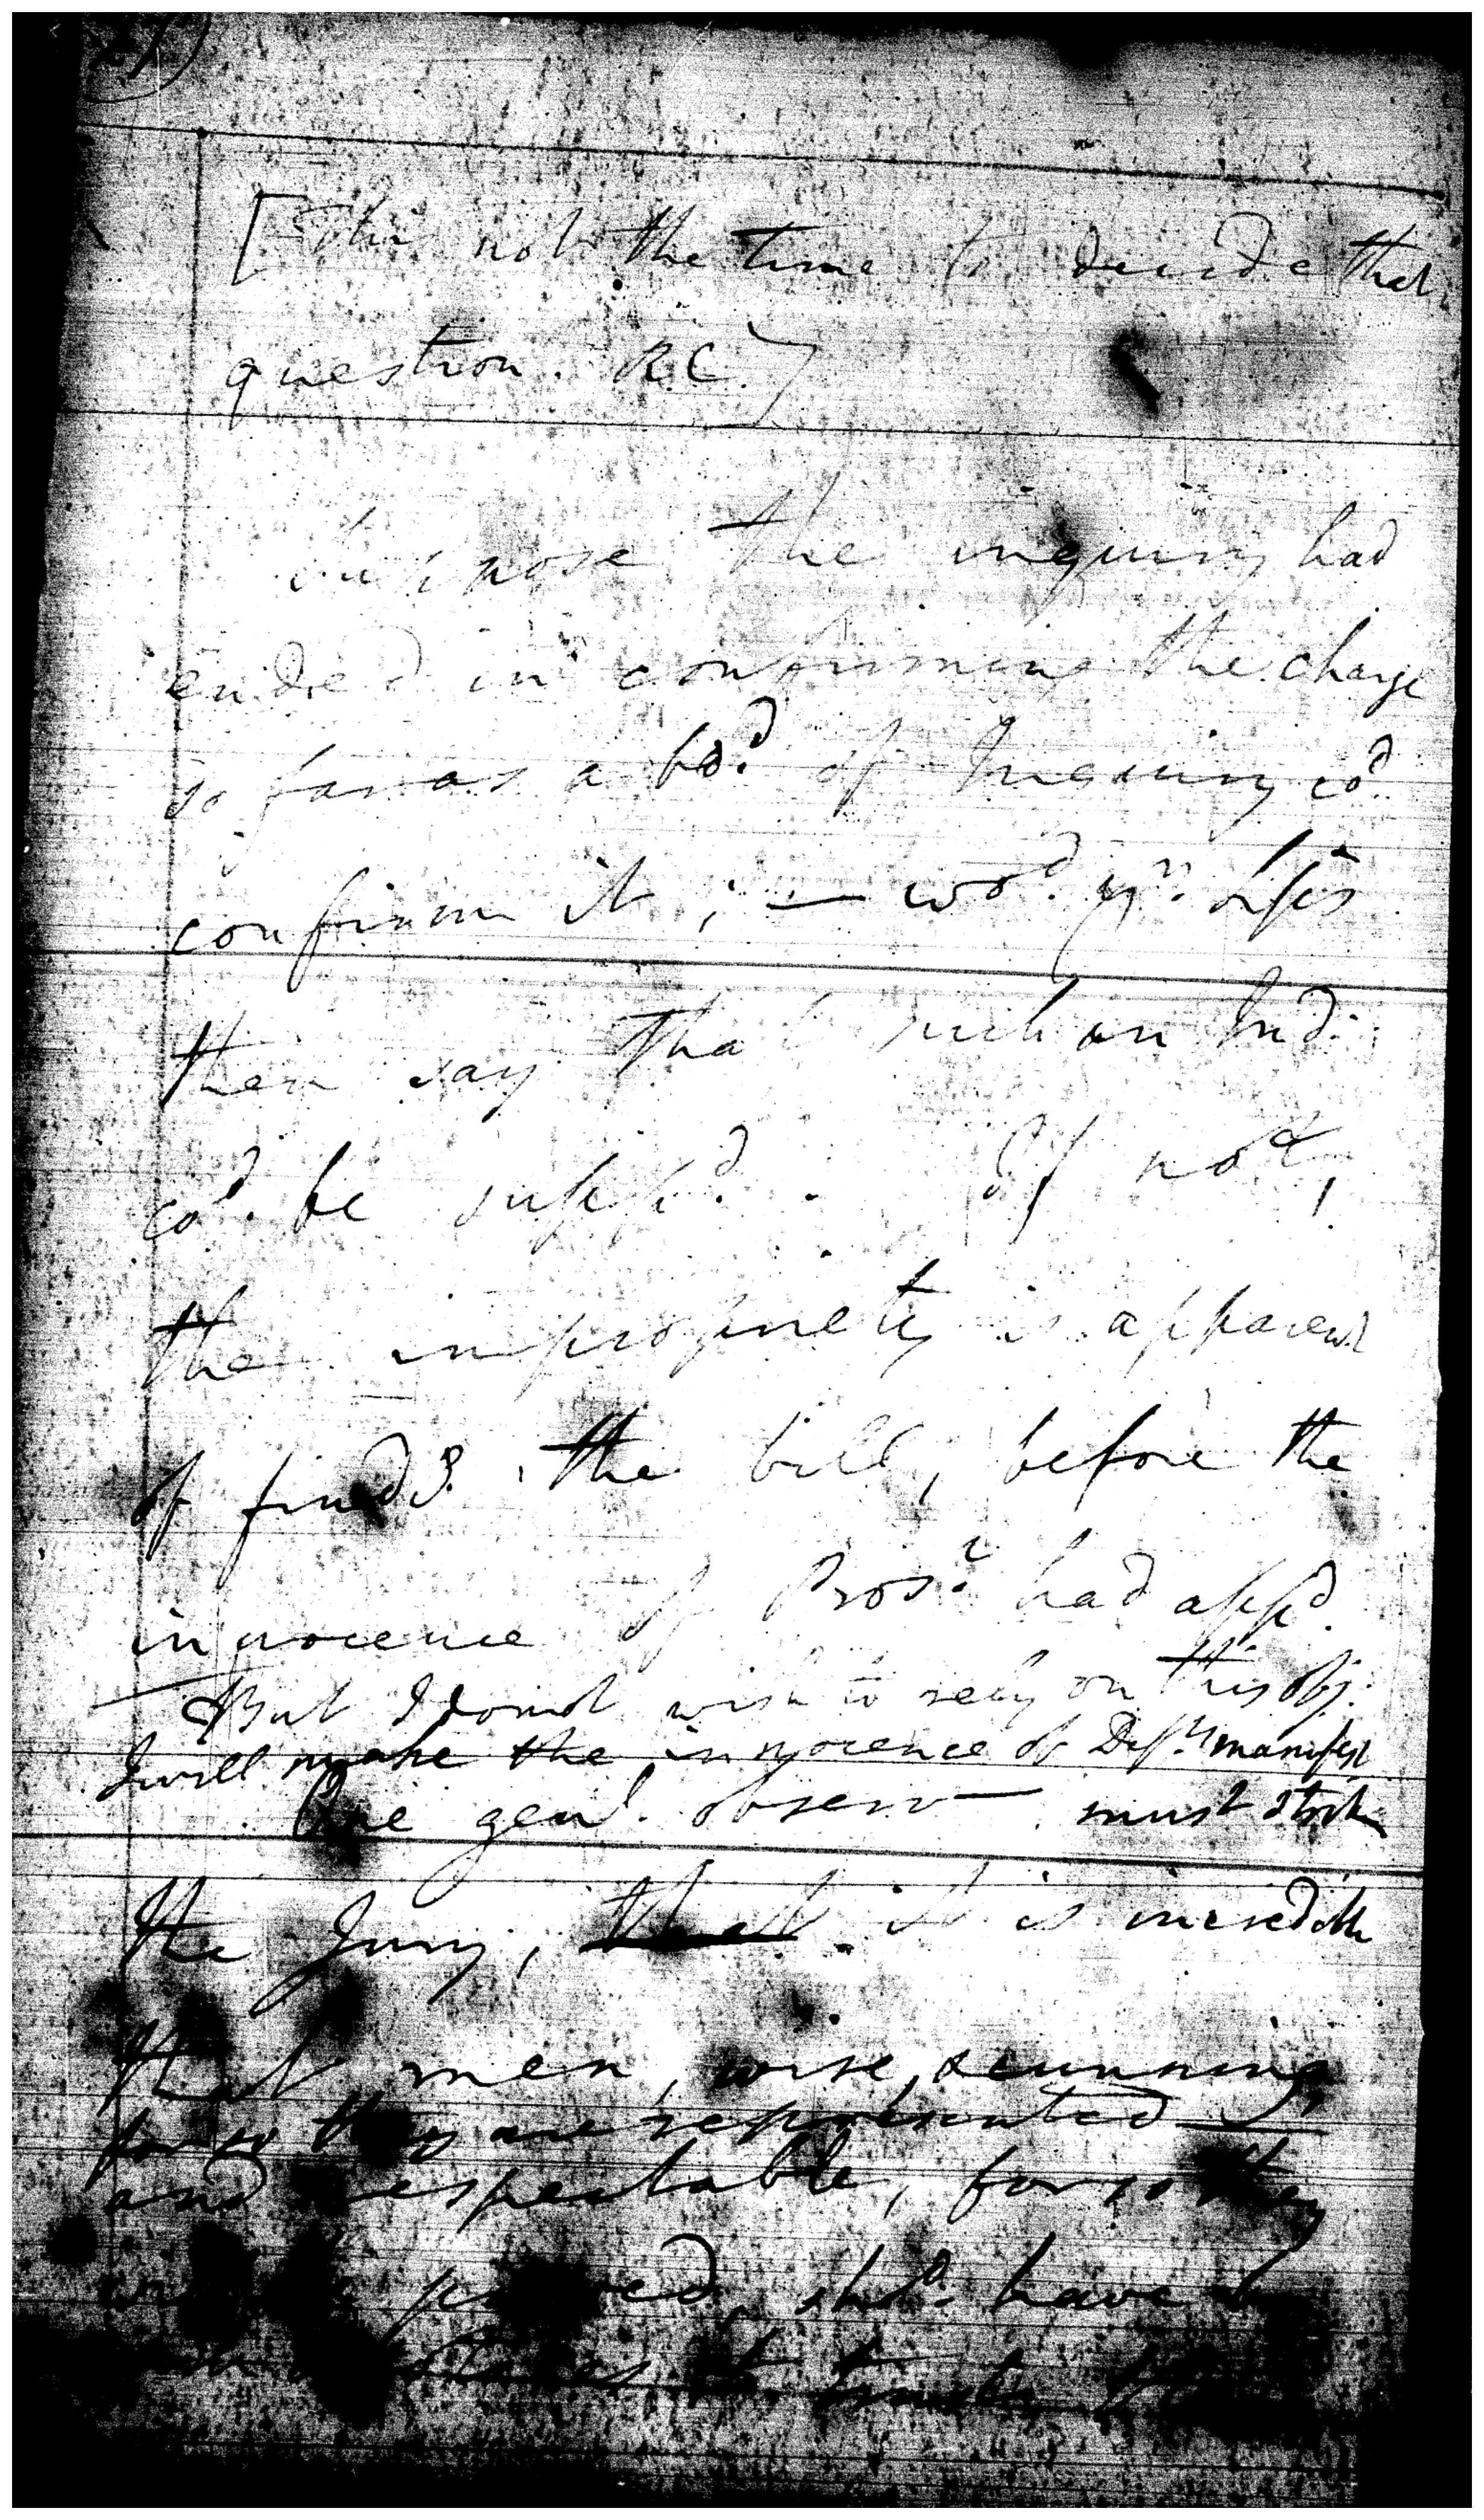 [This not the time to decide that
question. R.C.]
Suppose the inquiry had
ended in confirming the charge
so far as a bd. of Inquiry cd
confirm it; — wod. yr.
then say that such an Ind.
cod. be suppd. If not,
the impropriety is apparent
of findg. the bill, before the
innocence of Prosr. had appd.
But I do not wish to rely on this obj.
I will make the innocence of Defts manifest
One genl. observn must strike
the Jury, that it is incredible
that men, wise, & cunning,
for so they are represented —
and respectable, for so they
will be proved, shd. have